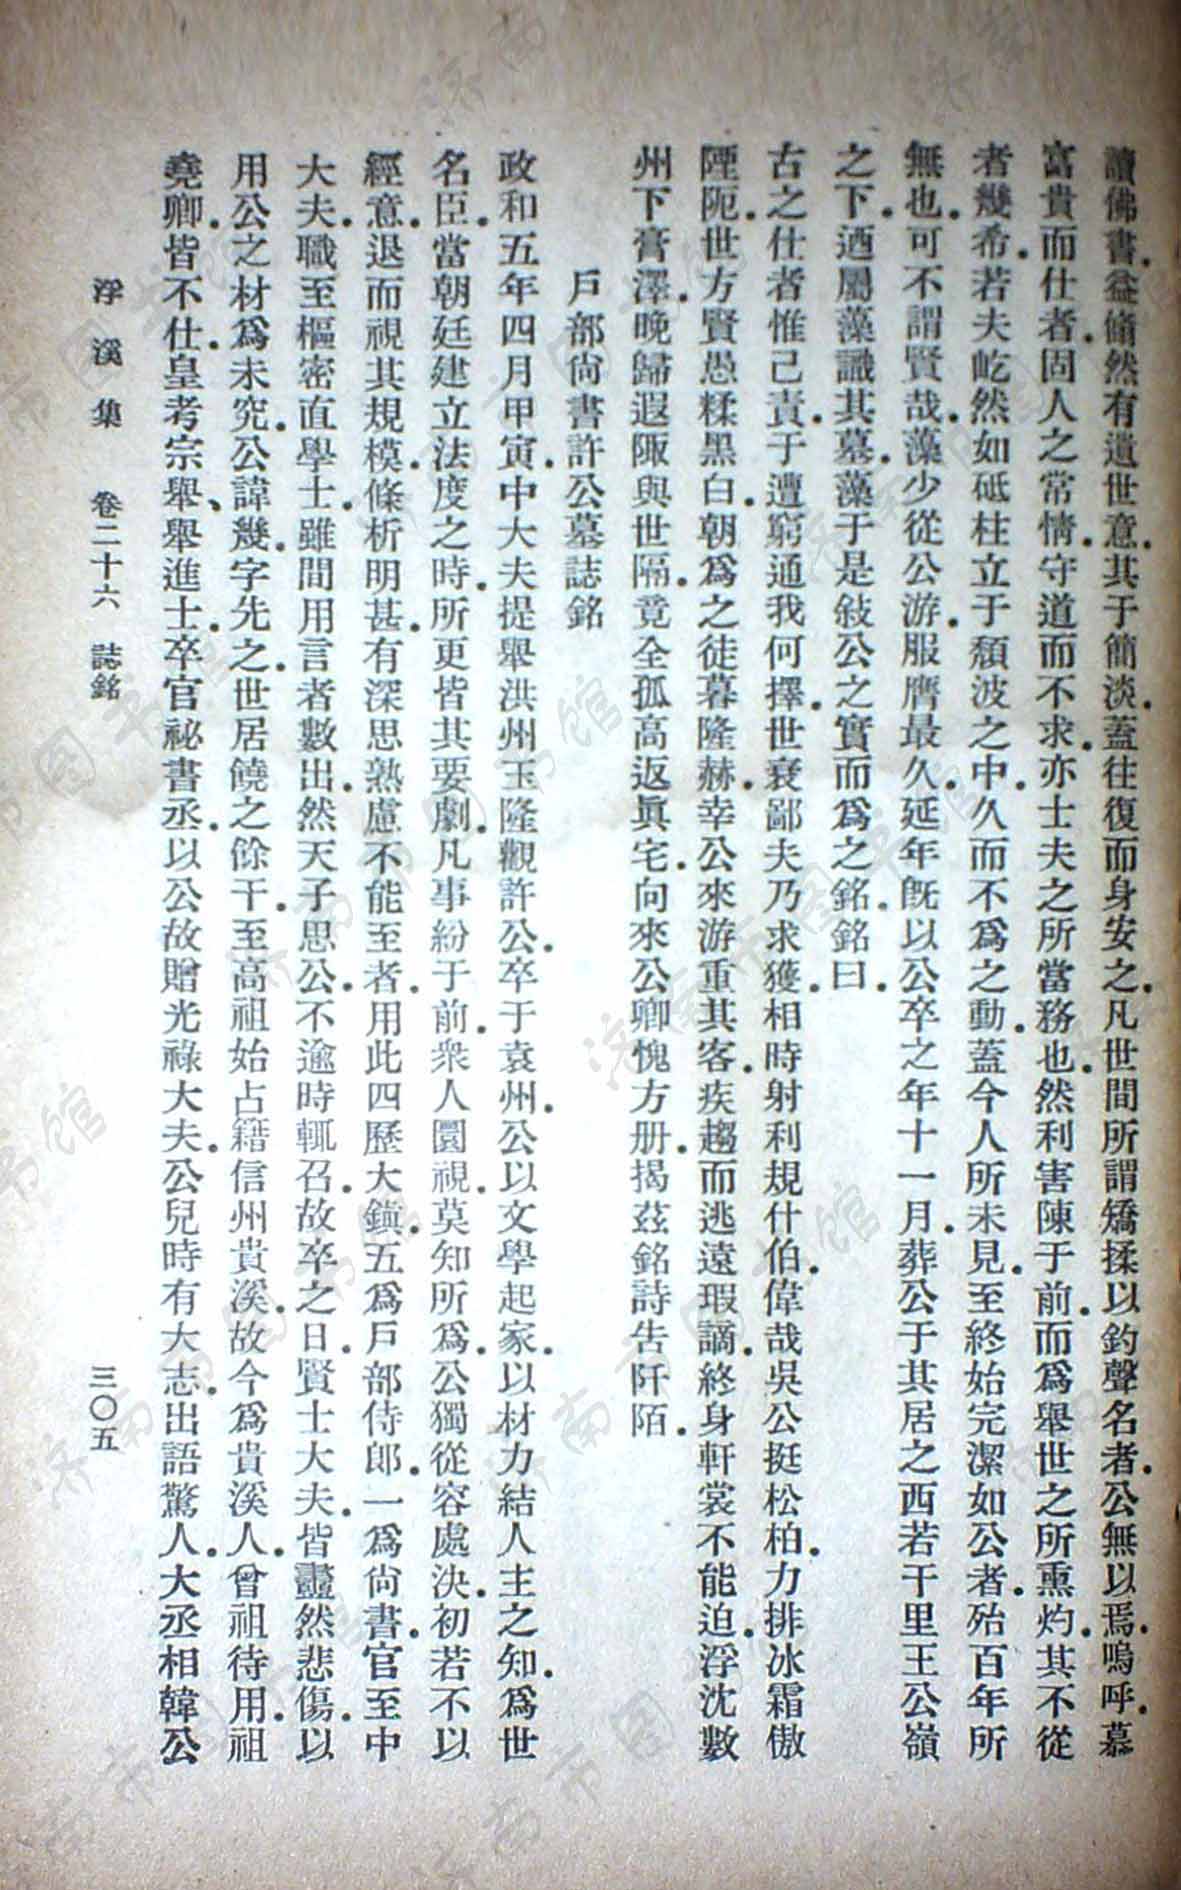 讀佛書。益翛然有遺世意。其于簡淡。蓋往復而身安之。凡世間所謂矯揉以釣聲名者。公無以焉。嗚呼。慕
富貴而仕者。固人之常情。守道而不求。亦士夫之所當務也。然利害陳于前。而爲舉世之所熏灼。其不從
者幾希。若夫屹然如砥柱立于頹波之中。久而不爲之動。蓋今人所未見。至終始完潔如公者。殆百年所
無也。可不謂賢哉。藻少從公游。服膺最久。延年旣以公卒之年十一月。葬公于其居之西若干里王公嶺
之下。迺屬藻識其墓。藻于是敍公之實而爲之銘。銘曰。
古之仕者惟己責。于遭窮通我何擇。世衰鄙夫乃求獲。相時射利規什伯。偉哉吳公挺松柏。力排冰霜傲
陻阨。世方賢愚糅黑白。朝爲之徒暮隆赫。幸公來游重其客。疾趨而逃遠瑕謫。終身軒裳不能迫。浮沈數
州下膏澤。晚歸遐陬與世隔。竟全孤高返眞宅。向來公卿愧方册。揭茲銘詩告阡陌。
戶部尙書許公墓誌銘
政和五年四月甲寅。中大夫提舉洪州玉隆觀許公。卒于袁州。公以文學起家。以材力結人主之知。爲世
名臣。當朝廷建立法度之時。所更皆其要劇。凡事紛于前。衆人圜視。莫知所爲。公獨從容處決。初若不以
經意。退而視其規模。條析明甚。有深思熟慮不能至者。用此四歷大鎭。五爲戶部侍郎。一爲尙書。官至中
大夫。職至樞密直學士。雖間用言者數出。然天子思公。不逾時輒召。故卒之日。賢士大夫。皆盡然悲傷。以
用公之材爲未究。公諱幾。字先之。世居饒之餘干。至高祖始占籍信州貴溪。故今爲貴溪人。曾祖待用。祖
堯卿。皆不仕。皇考宗舉、舉進士。卒官祕書丞。以公故贈光祿大夫。公兒時有大志。出語驚人。大丞相韓公
浮溪集 卷二十六 誌銘 三〇五